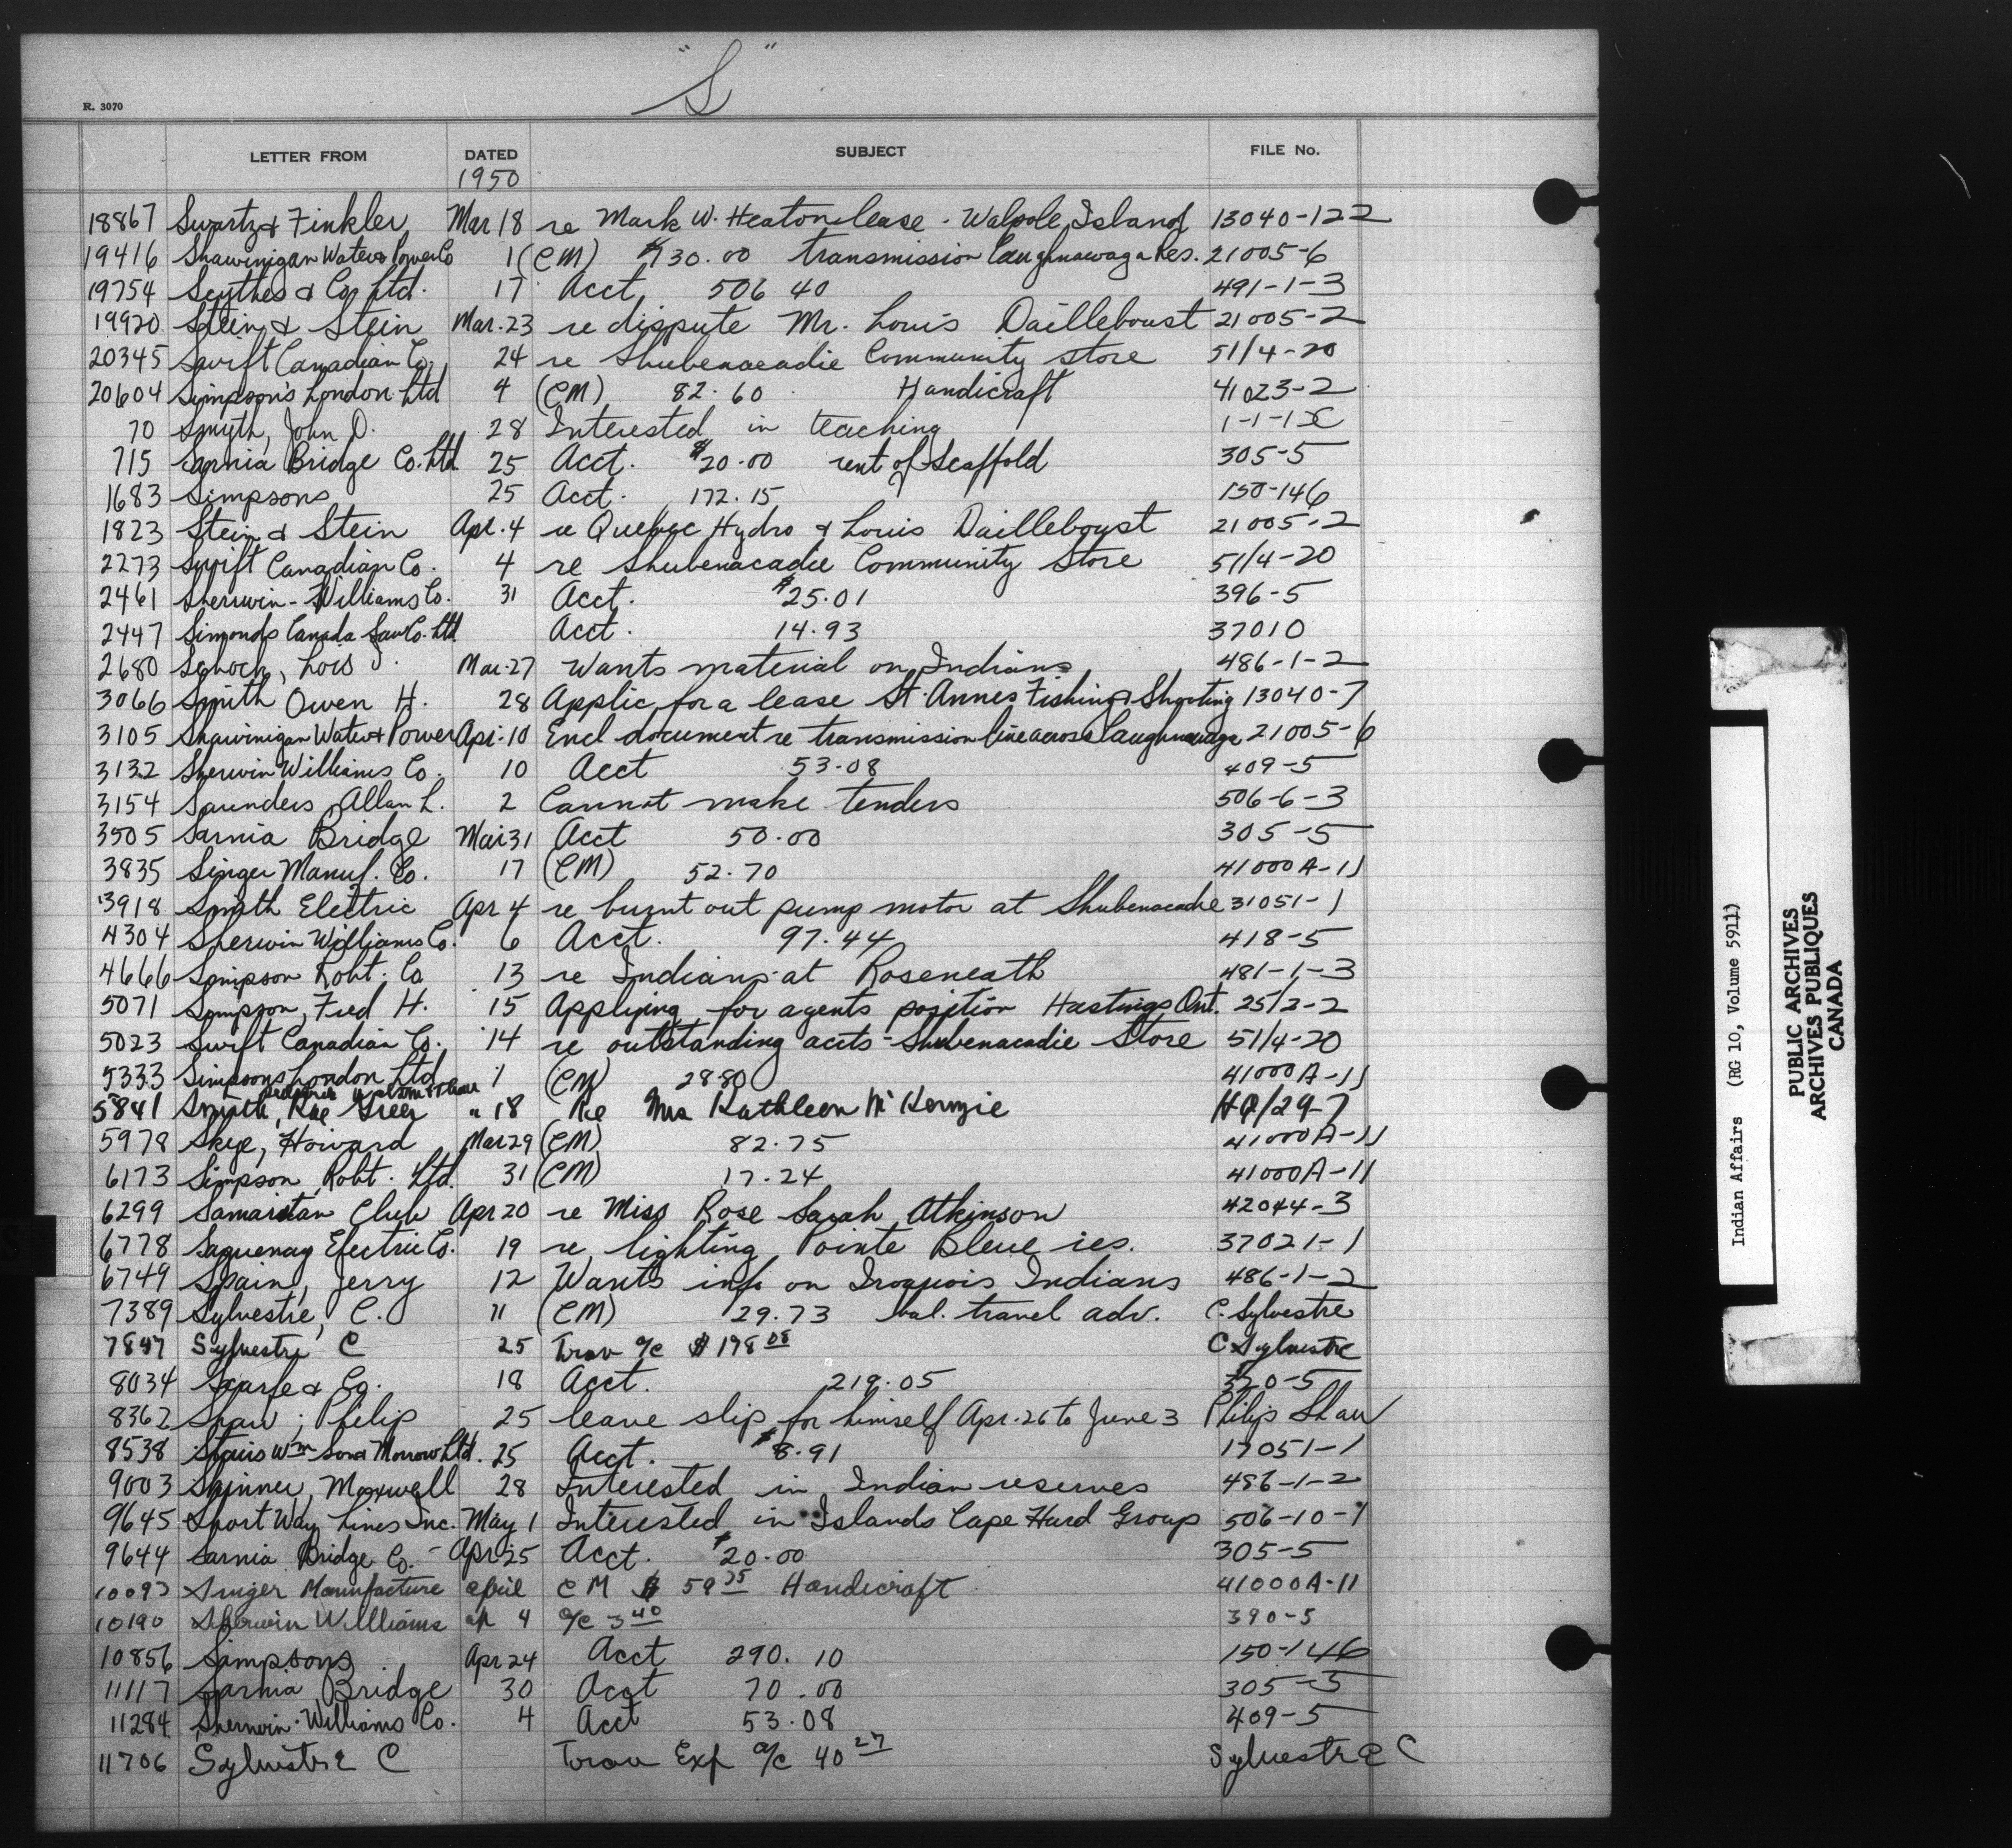 "S"
R. 3070
LETTER FROM DATED SUBJECT FILE No.
1950
18867 Swartz & Finkler Mar 18 re Mark W. Heaton lease - Walpole Island 13040-122
19416 Shawinigan Water & Power Co 1 (CM) $730.00 transmission Caughnawaga Res. 21005-6
19754 Scythes & Co Ltd. 17 Acct 506 40 491-1-3
19920 Stein & Stein Mar. 23 re dispute Mr. Louis Dailleboust 21005-2
20345 Swift Canadian Co. 24 re Shubenacadie Community store 51/4-20
20604 Simpson's London Ltd 4 (CM) 82.60 Handicraft 41023-2
70 Smyth, John D. 28 Interested in teaching 1-1-1
715 Sarnia Bridge Co. Ltd 25 Acct. $20.00 rent of Scaffold 305-5
1683 Simpsons 25 Acct. 172.15 150-146
1823 Stein & Stein Apr. 4 re Quebec Hydro & Louis Dailleboust 21005-2
2273 Swift Canadian Co. 4 re Shubenacadie Community Store 51/4-20
2461 Sherwin-Williams Co. 31 Acct. $25.01 396-5
2447 Simonds Canada Saw Co. Ltd Acct. 14.93 37010
2680 Schoch, Lois J. Mar. 27 Wants material on Indians 486-1-2
3066 Smith Owen H. 28 Applic for a lease St. Annes Fishing & Shooting 13040-7
3105 Shawinigan Water & Power Apr. 10 Encl document re transmission line across Caughnawaga 21005-6
3132 Sherwin Williams Co. 10 Acct 53.08 409-5
3154 Saunders, Allan L. 2 Cannot make tenders 506-6-3
3505 Sarnia Bridge Mar 31 Acct 50.00 305-5
3835 Singer Manuf. Co. 17 (CM) 52.70 41000A-11
3918 Smith Electric Apr 4 re burnt out pump motor at Shubenacadie 31051-1
4304 Sherwin Williams Co. 6 Acct. 97.44 418-5
4666 Simpson Robt. Co 13 re Indians at Roseneath 481-1-3
5071 Simpson, Fred H. 15 Applying for agents position Hastings Ont. 25/2-2
5023 Swift Canadian Co. 14 re outstanding accts - Shubenacadie Store 51/4-20
5333 Simpsons London Ltd 1 (CM) 28.80 41000A-11
5841 Smith, Rae Greer " 18 Re Mrs Kathleen McKenzie HQ/29-7
5978 Skye, Howard Mar 29 (CM) 82.75 41000A-11
6173 Simpson, Robt. Ltd. 31 (CM) 17.24 41000A-11
6299 Samaritan Club Apr 20 re Miss Rose Sarah Atkinson 42044-3
6778 Saguenay Electric Co. 19 re lighting Pointe Bleue res. 37021-1
6749 Spain, Jerry 12 Wants info on Iroquois Indians 486-1-2
7389 Sylvestre, C. 11 (CM) 29.73 bal. travel adv. C. Sylvestre
7847 Sylvestre C 25 Trav a/c $198 08 C Sylvestre
8034 Scarfe & Co. 18 Acct. 219.05 320-5
8362 Shaw, Philip 25 leave slip for himself Apr. 26 to June 3 Philip Shaw
8538 Stairs Wm Son & Morrow Ltd. 25 Acct. $8.91 17051-1
9003 Skinner, Maxwell 28 Interested in Indian reserves 486-1-2
9645 Short Way Lines Inc. May 1 Interested in Islands Cape Hurd Group 506-10-1
9644 Sarnia Bridge Co. - Apr 25 Acct. $20.00 305-5
10093 Singer Manufacture april CM $ 59 35 Handicraft 41000A-11
10190 Sherwin Williams ap 4 a/c 3 40 390-5
10856 Simpsons Apr 24 Acct 290.10 150-146
11117 Sarnia Bridge 30 Acct 70.00 305-5
11284 Sherwin-Williams Co. 4 Acct 53.08 409-5
11706 Sylvestre C Trav Exp a/c 40 27 Sylvestre C
Indian Affairs (RG 10, Volume 5911)
PUBLIC ARCHIVES
ARCHIVES PUBLIQUES
CANADA